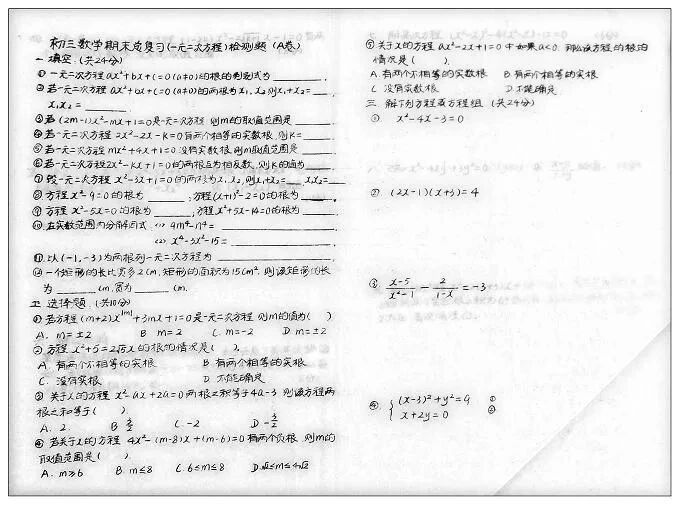 初三数学期末总复习(一元二次方程)检测题(A卷)
一 填空:(共24分)
① 一元二次方程 ax²+bx+c=0(a≠0)的根的判别式为____.
② 若一元二次方程 ax²+bx+c=0(a≠0)的两根为x₁,x₂则x₁+x₂=__,
x₁x₂=____.
③ 若(2m-1)x²-mx+1=0是一元二次方程 则m的取值范围是____
④ 若一元二次方程 2x²-2x-k=0有两个相等的实数根,则k=____.
⑤ 若一元二次方程 mx²+4x+1=0没有实数根,则m取值范围是____
⑥ 若一元二次方程2x²-kx+1=0的两根互为相反数,则k的值为____.
⑦ 设一元二次方程x²-3x+1=0的两根为x₁,x₂,则x₁+x₂=__ x₁x₂=__
⑧ 方程x²-9=0的根为____;方程(x+1)²-2=0的根为____.
⑨ 方程x²-5x=0的根为____;方程x²+5x-14=0的根为____.
⑩ 在实数范围内分解因式 (1) 9m⁴-n⁴=____
(2) x⁴-3x²-15=____.
⑪ 以(-1,-3)为两根列一元二次方程为____
⑫ 一个矩形的长比宽多2cm,矩形的面积为15cm²,则该矩形的长
为____cm,宽为____cm.
二 选择题 (共10分)
① 若方程(m+2)x^|m|+3mx+1=0是一元二次方程 则m的值为( )
A. m=±2 B m=2 C. m=-2 D m=±2
② 方程x²+5=2√5x的根的情况是( ).
A. 有两个不相等的实根 B 有两个相等的实根
C. 没有实根 D 不能确定
③ 关于x的方程 x²-ax+2a=0两根之积等于4a-3 则该方程两
根之和等于( )
A. 2. B 3/2 C. -2 D -3/2
④ 若关于x的方程 4x²-(m-8)x+(m-6)=0有两个负根 则m的
取值范围是( ).
A. m≥6 B. m≤8 C. 6≤m≤8 D.√2≤m≤4√2
⑤ 关于x的方程 ax²-2x+1=0中如果a<0 那么该方程的根的
情况是( ).
A. 有两个不相等的实数根 B 有两个相等的实数根
C 没有实数根 D.不能确定
三 解下列方程或方程组 (共24分)
① x²-4x-3=0
② (2x-1)(x+3)=4
③ (x-5)/(x²-1)-2/(1-x)=-3
④ {(x-3)²+y²=9 ①
x+2y=0 ②